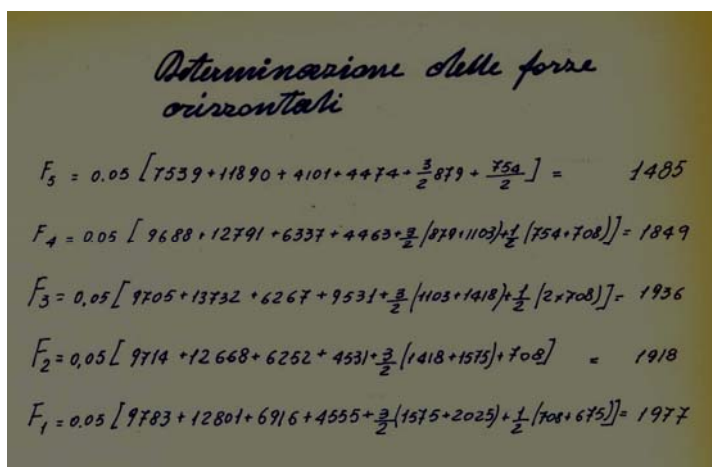 Determinazione delle forze
orizzontali
F5 = 0.05 [7539+11890+4101+4474+3/2 879+754/2] = 1485
F4 = 0.05 [9688+12791+6337+4463+3/2(879+1103)+1/2(754+708)] = 1849
F3 = 0,05 [9705+13732+6267+9531+3/2(1103+1418)+1/2(2x708)] = 1936
F2 = 0,05 [9714+12668+6252+4531+3/2(1418+1575)+708] = 1918
F1 = 0.05 [9783+12801+6916+4555+3/2(1575+2025)+1/2(708+675)] = 1977